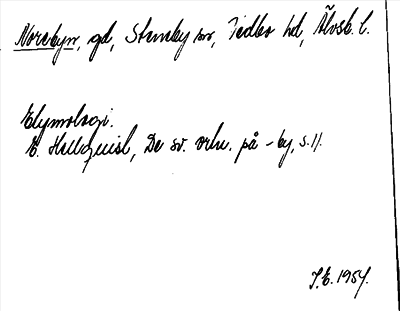 Norebyn, gd, Steneby sn, Vedbo hd, Älvsb. l.
Etymologi:
E. Hellquist, De sv. ortn. på -by, s. 11.
J.E. 1954.